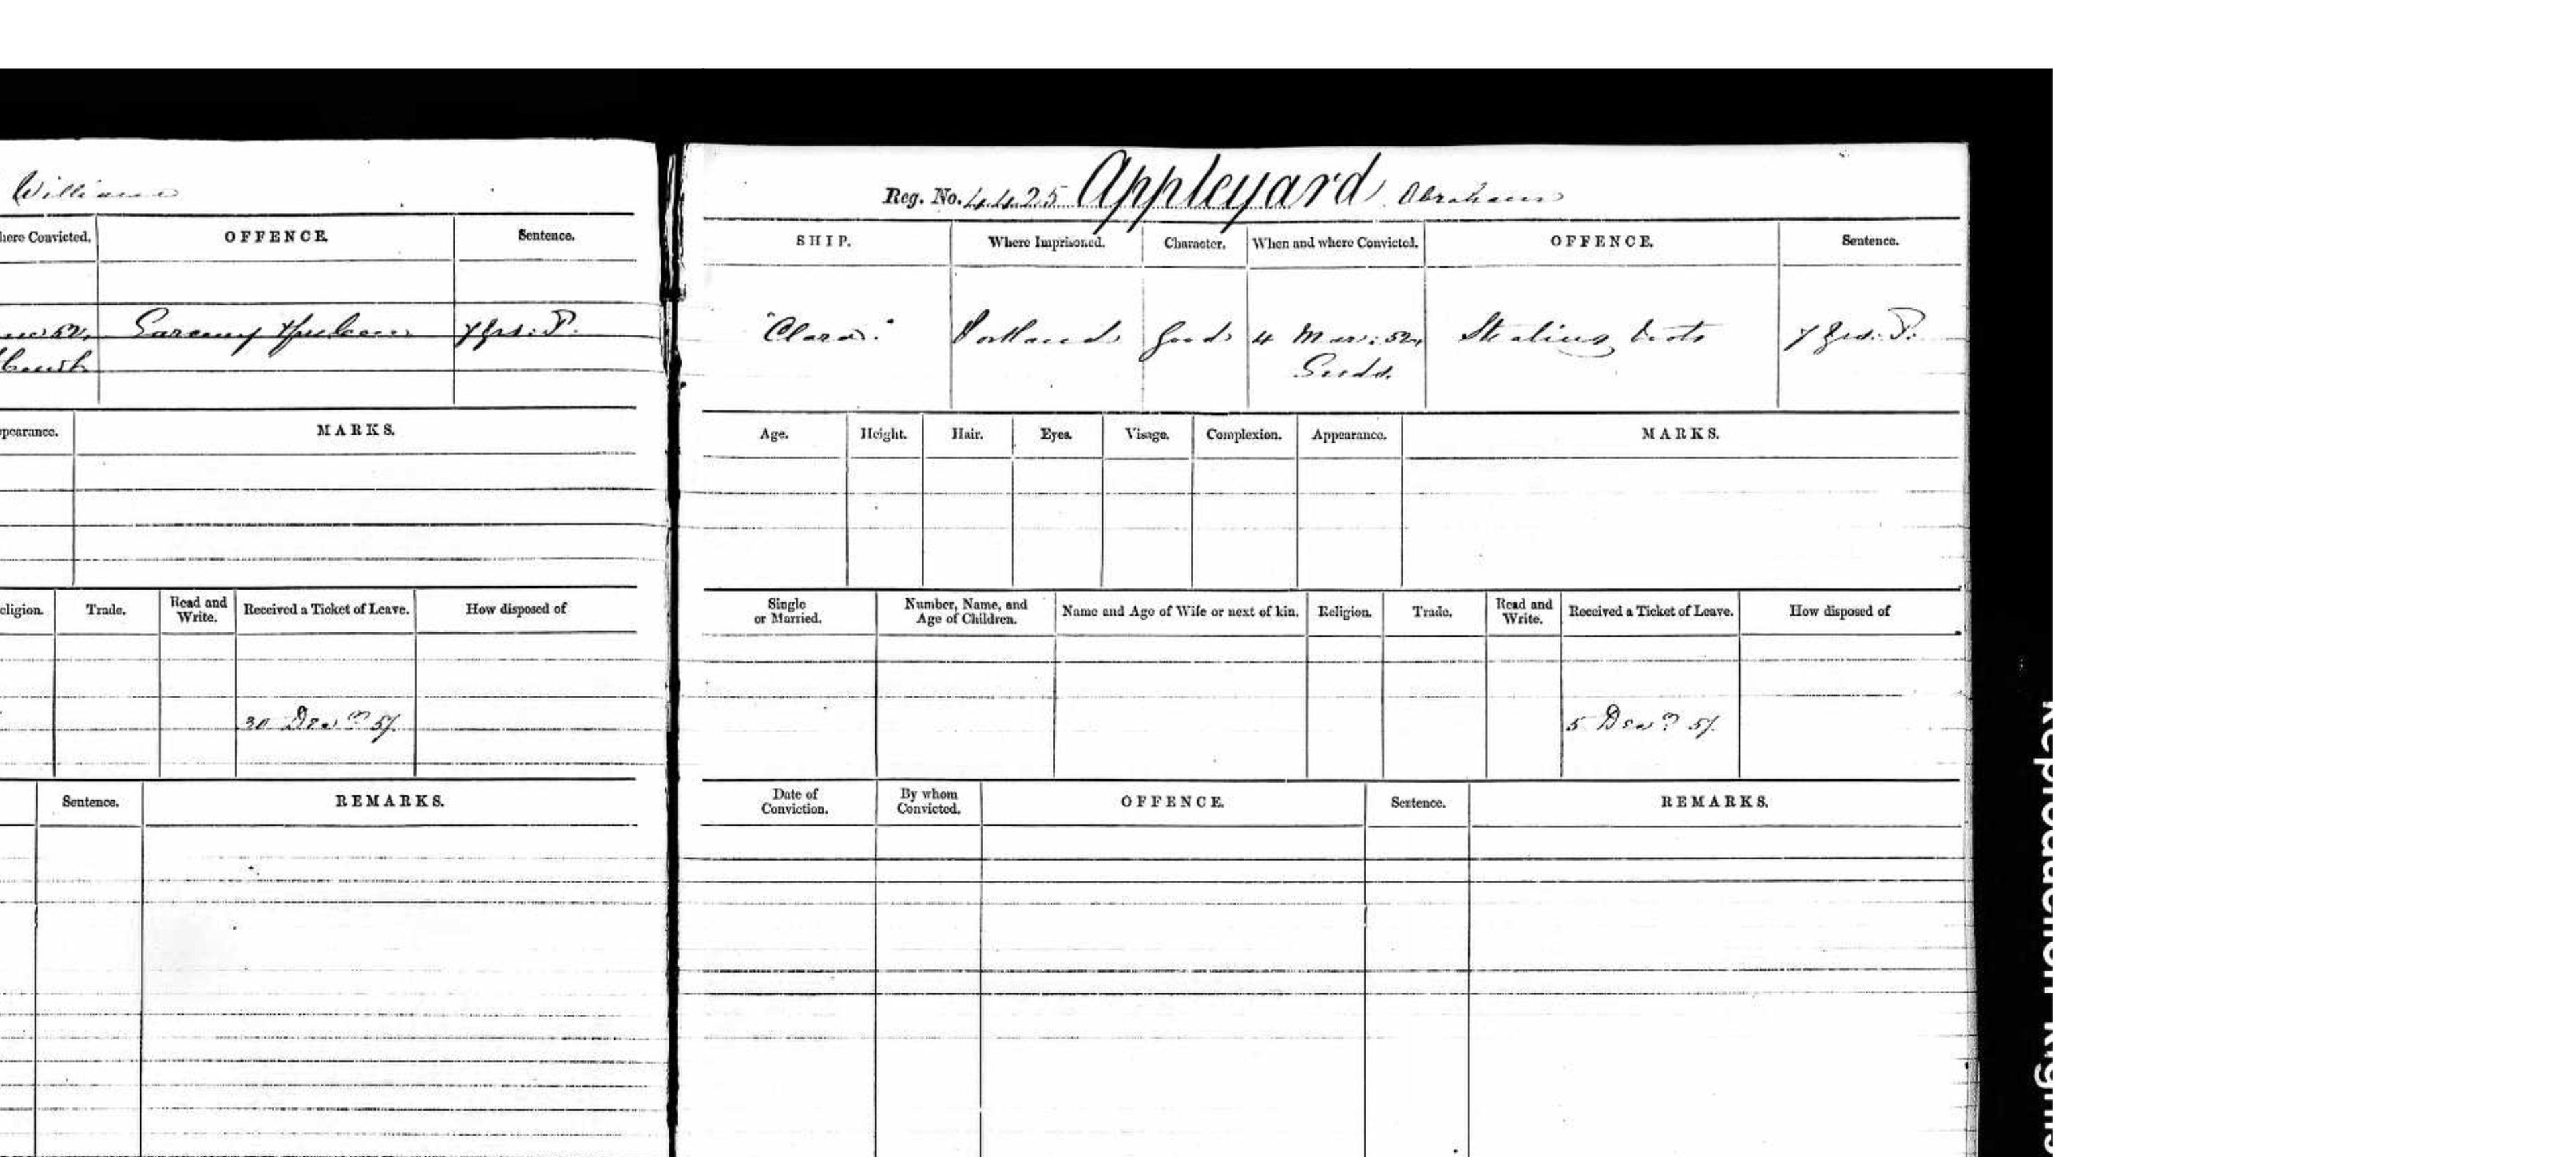 William
here Convicted. OFFENCE. Sentence.
52, Larceny 7 yrs. T.
Court
ppearance. MARKS.
eligion. Trade. Read and Write. Received a Ticket of Leave. How disposed of
30 Decr 57.
Sentence. REMARKS.
Reg. No. 4425 Appleyard Abraham
SHIP. Where Imprisoned. Character. When and where Convicted. OFFENCE. Sentence.
"Clara." Portland Good 4 Mar: 52, Stealing boots 7 yrs. T.
Leeds.
Age. Height. Hair. Eyes. Visage. Complexion. Appearance. MARKS.
Single or Married. Number, Name, and Age of Children. Name and Age of Wife or next of kin. Religion. Trade. Read and Write. Received a Ticket of Leave. How disposed of
5 Decr 57.
Date of Conviction. By whom Convicted. OFFENCE. Sentence. REMARKS.